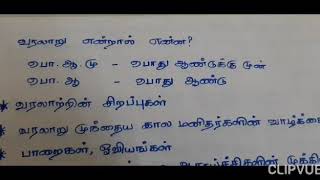 வரலாறு என்றால் என்ன?
பொ. ஆ. மு - பொது ஆண்டுக்கு முன்
பொ. ஆ - பொது ஆண்டு
* வரலாற்றின் சிறப்புகள்
* வரலாறு முந்தைய கால மனிதர்களின் வாழ்க்கை
பாறைகள், ஓவியங்கள்
CLIPVUE